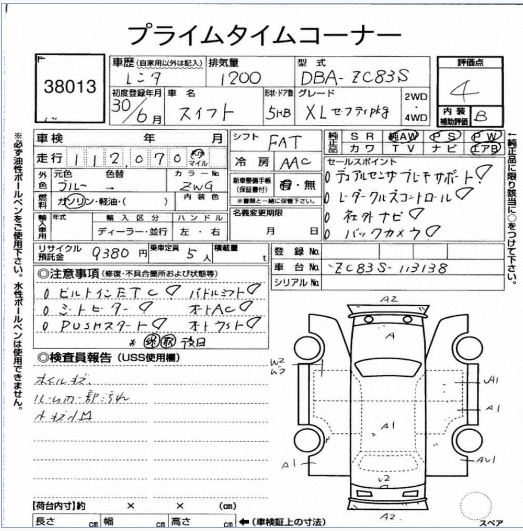 プライムタイムコーナー
38013
車歴 (自家用以外は記入) 排気量 型式 評価点
レンタ 1200 DBA-ZC83S 4
初度登録年月 車名 形状・ドア数 グレード 2WD 4WD 内装補助評価 B
30/6月 スイフト 5HB XLセフティpkg
車検 年 月 シフト FAT 純正品 SR 純AW PS PW
カワ TV ナビ エアB
走行 112,070 km マイル 冷房 AAC
外色 元色 色替 カラーNo.
ブルー → ZWG
燃料 ガソリン・軽油・( ) 内装色
新車整備手帳(保証書付) 有・無
※書類と一緒に保管下さい。
名義変更期限 月 日
輸入車用 年式 輸入区分 ハンドル
ディーラー・並行 左・右
セールスポイント
0 デュアルセンサブレーキサポート!
0 レーダークルーズコントロール
0 社外ナビ
0 バックカメラ
リサイクル預託金 9380円 乗車定員 5人 積載量 t
登録No.
車台No. ZC83S-113138
シリアルNo.
◎注意事項 (修復・不具合箇所および状態等)
0 ビルトインETC パドルシフト
0 シートヒーター オートAC
0 PUSHスタート オートライト
※ 後日
◎検査員報告 (USS使用欄)
ルーム内一部汚れ
A2
A
A1
W
A2
W2
A1
A1
A1
AU1
スペア
【荷台内寸】約 × × (cm)
長さ cm 幅 cm 高さ cm ←(車検証上の寸法)
※必ず油性ボールペンをご使用下さい。水性ボールペンは使用できません。
←純正品に限り該当に○をつけて下さい。